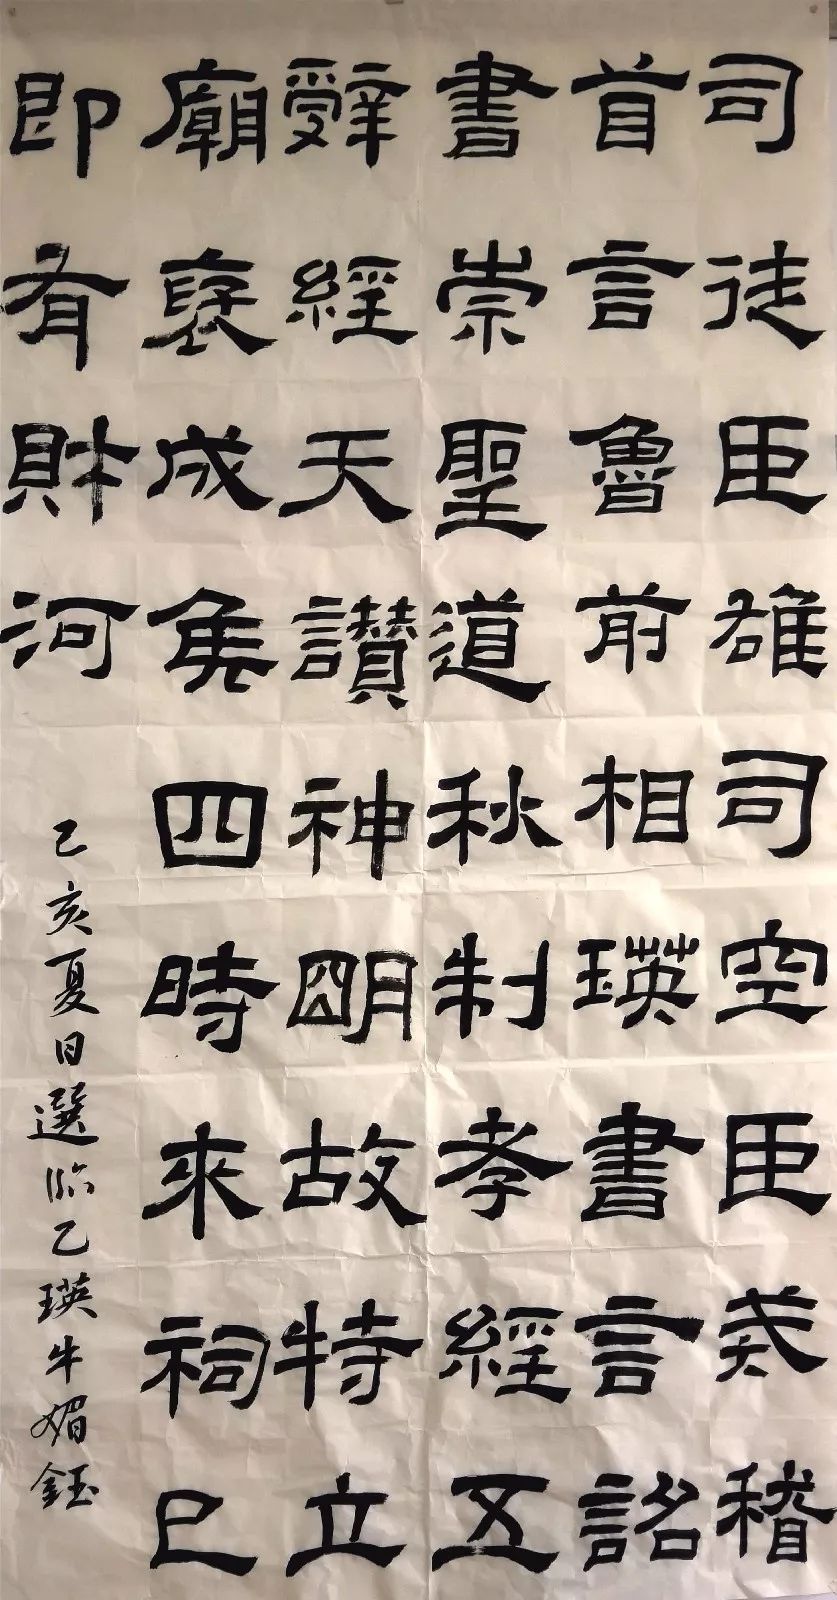 司徒臣雄司空臣戒稽
首言魯前相瑛書言詔
書崇聖道秋制孝經五
辤經天讃神朙故特立
廟襃成侯四時來祠已
即有財河
己亥夏日選临乙瑛牛媚鈺